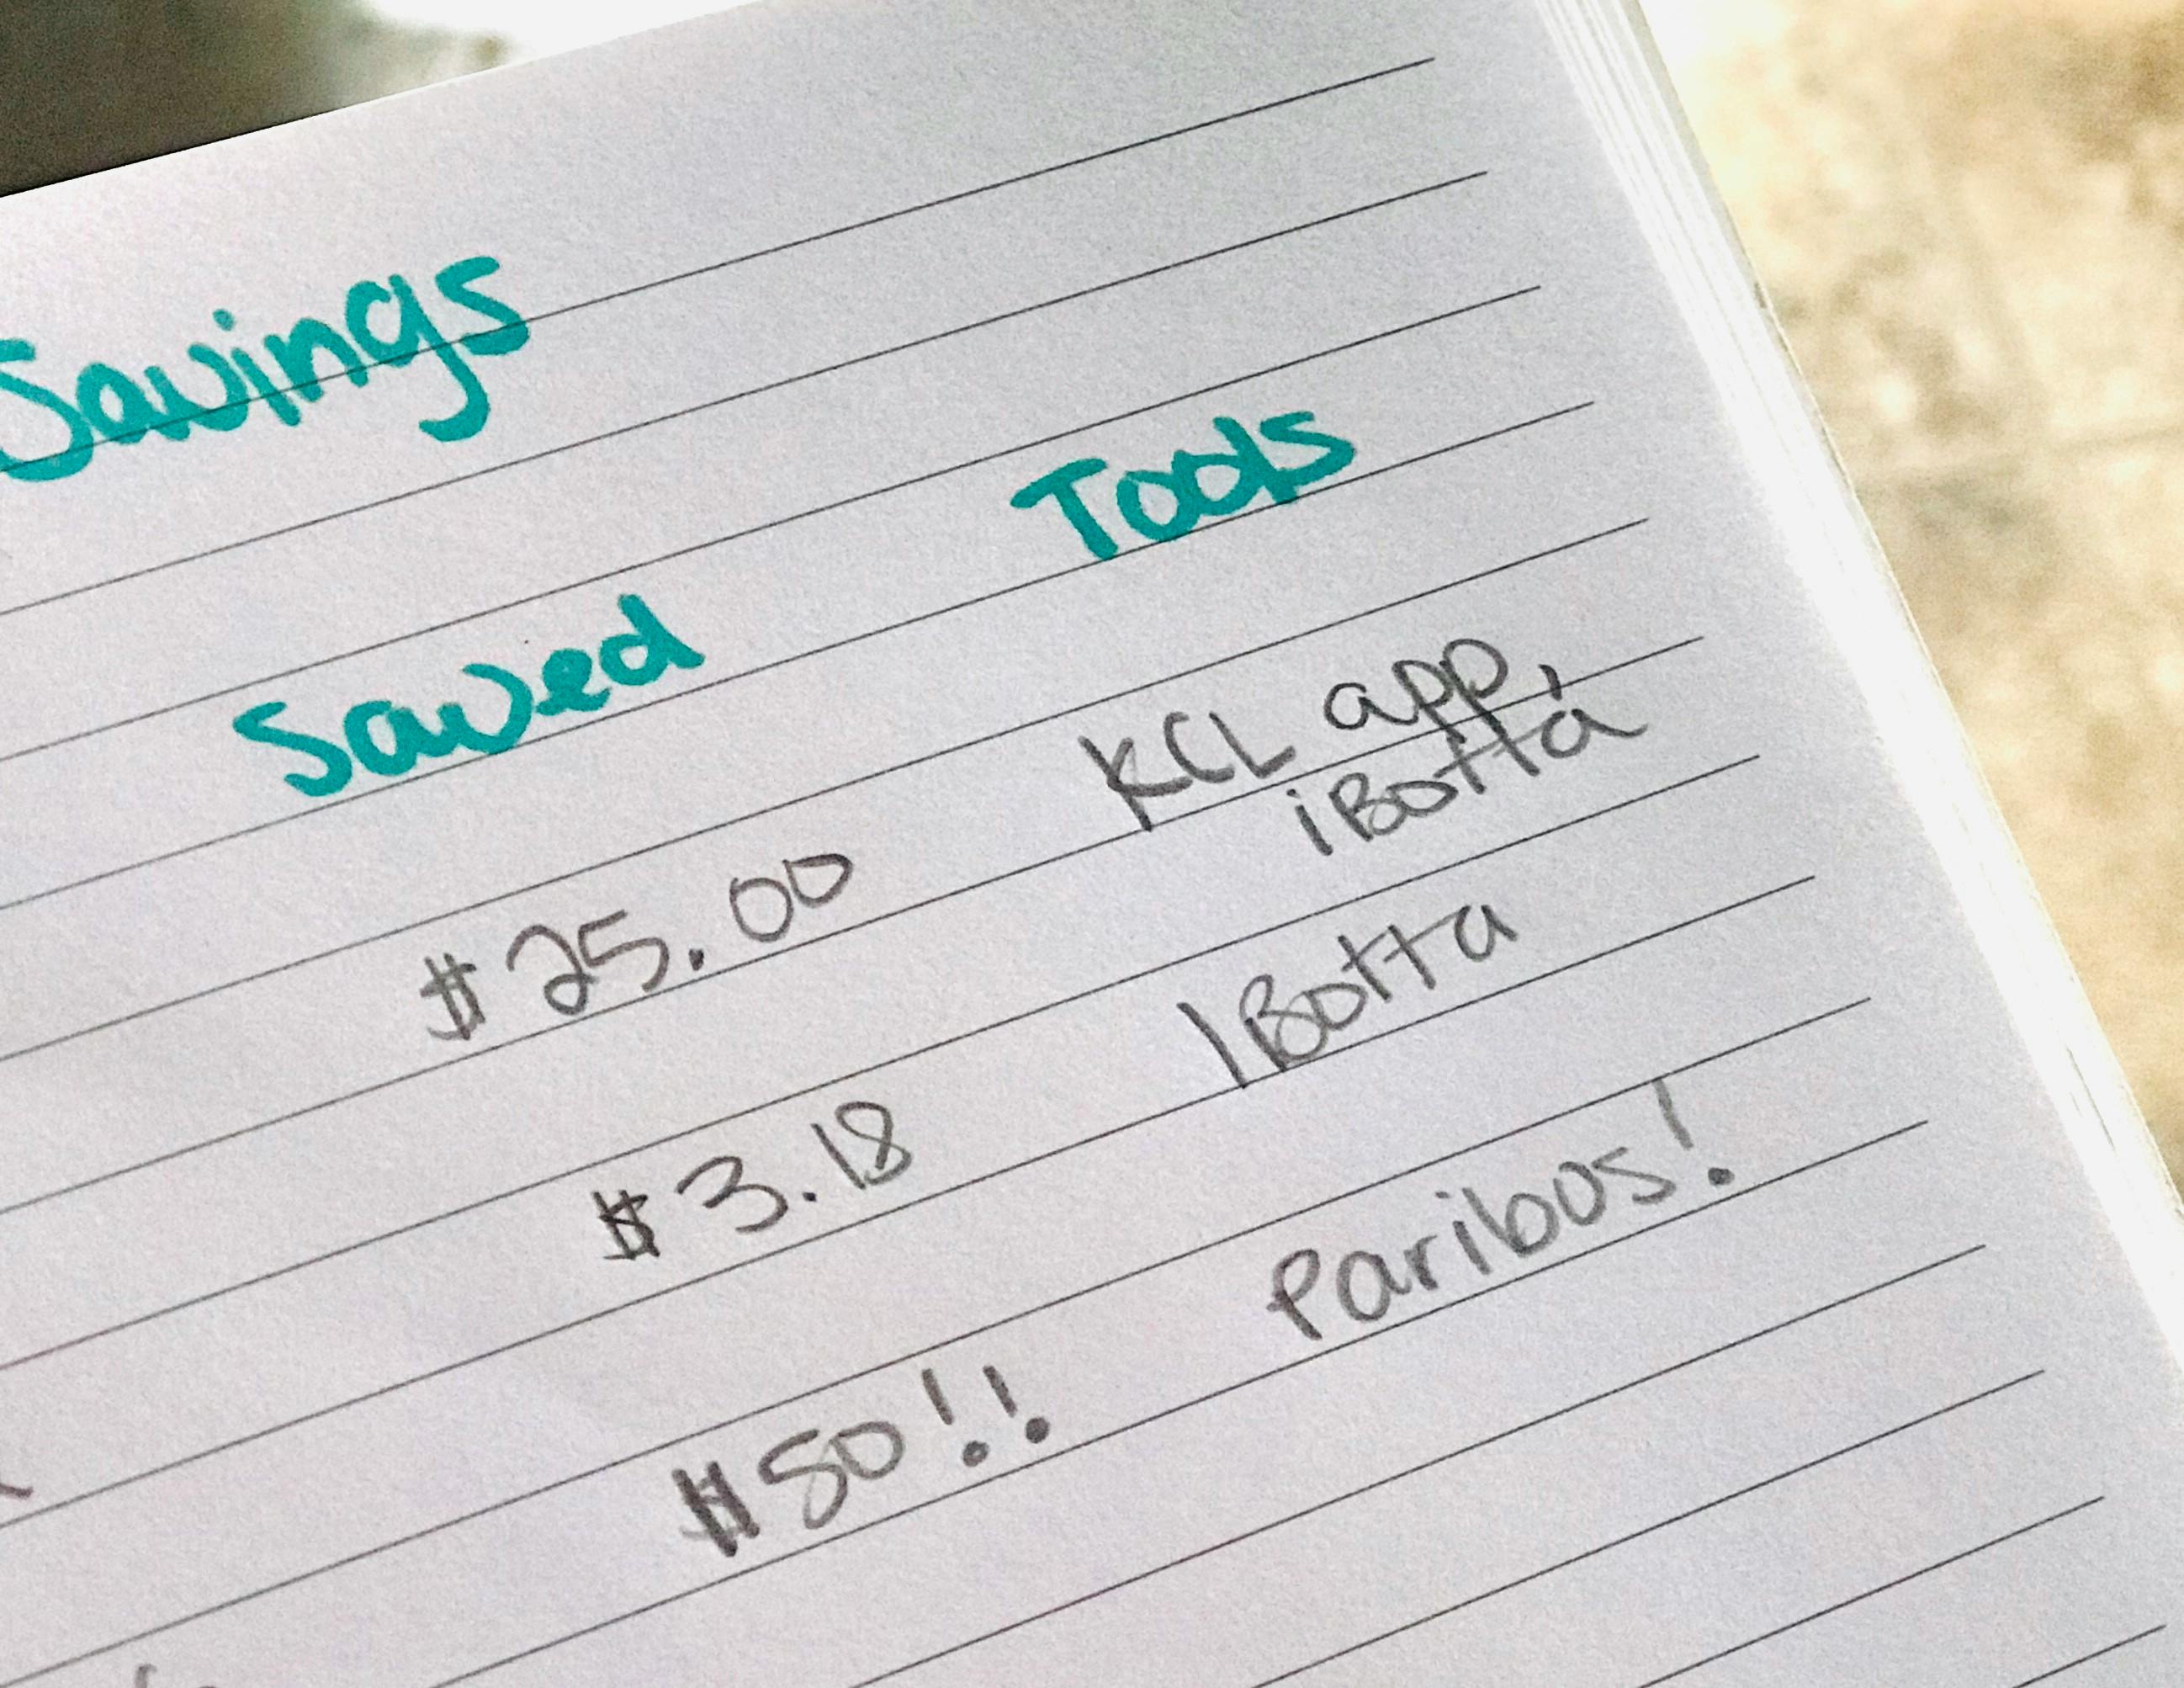 Savings
Saved Tools
$25.00 KCL app,
iBotta
$3.18 IBotta
$50!! Paribus!